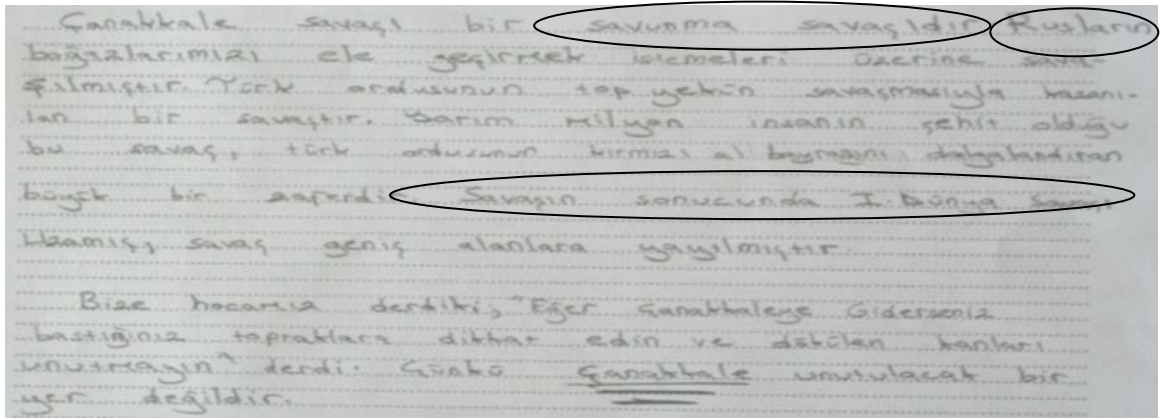 Çanakkale savaşı bir savunma savaşıdır Rusların
boğazlarımızı ele geçirmek istemeleri üzerine sava-
şılmıştır. Türk ordusunun top yekün savaşmasıyla kazanı-
lan bir savaştır. Yarım milyon insanın şehit olduğu
bu savaş, türk ordusunun kırmızı al bayrağını dalgalandıran
büyük bir zaferdir. Savaşın sonucunda I. Dünya Savaşı
Uzamış, savaş geniş alanlara yayılmıştır.
Bize hocamız derdiki; "Eğer Çanakkaleye Giderseniz
bastığınız topraklara dikkat edin ve dökülen kanları
unutmayın" derdi. Çünkü Çanakkale unutulacak bir
yer değildir.